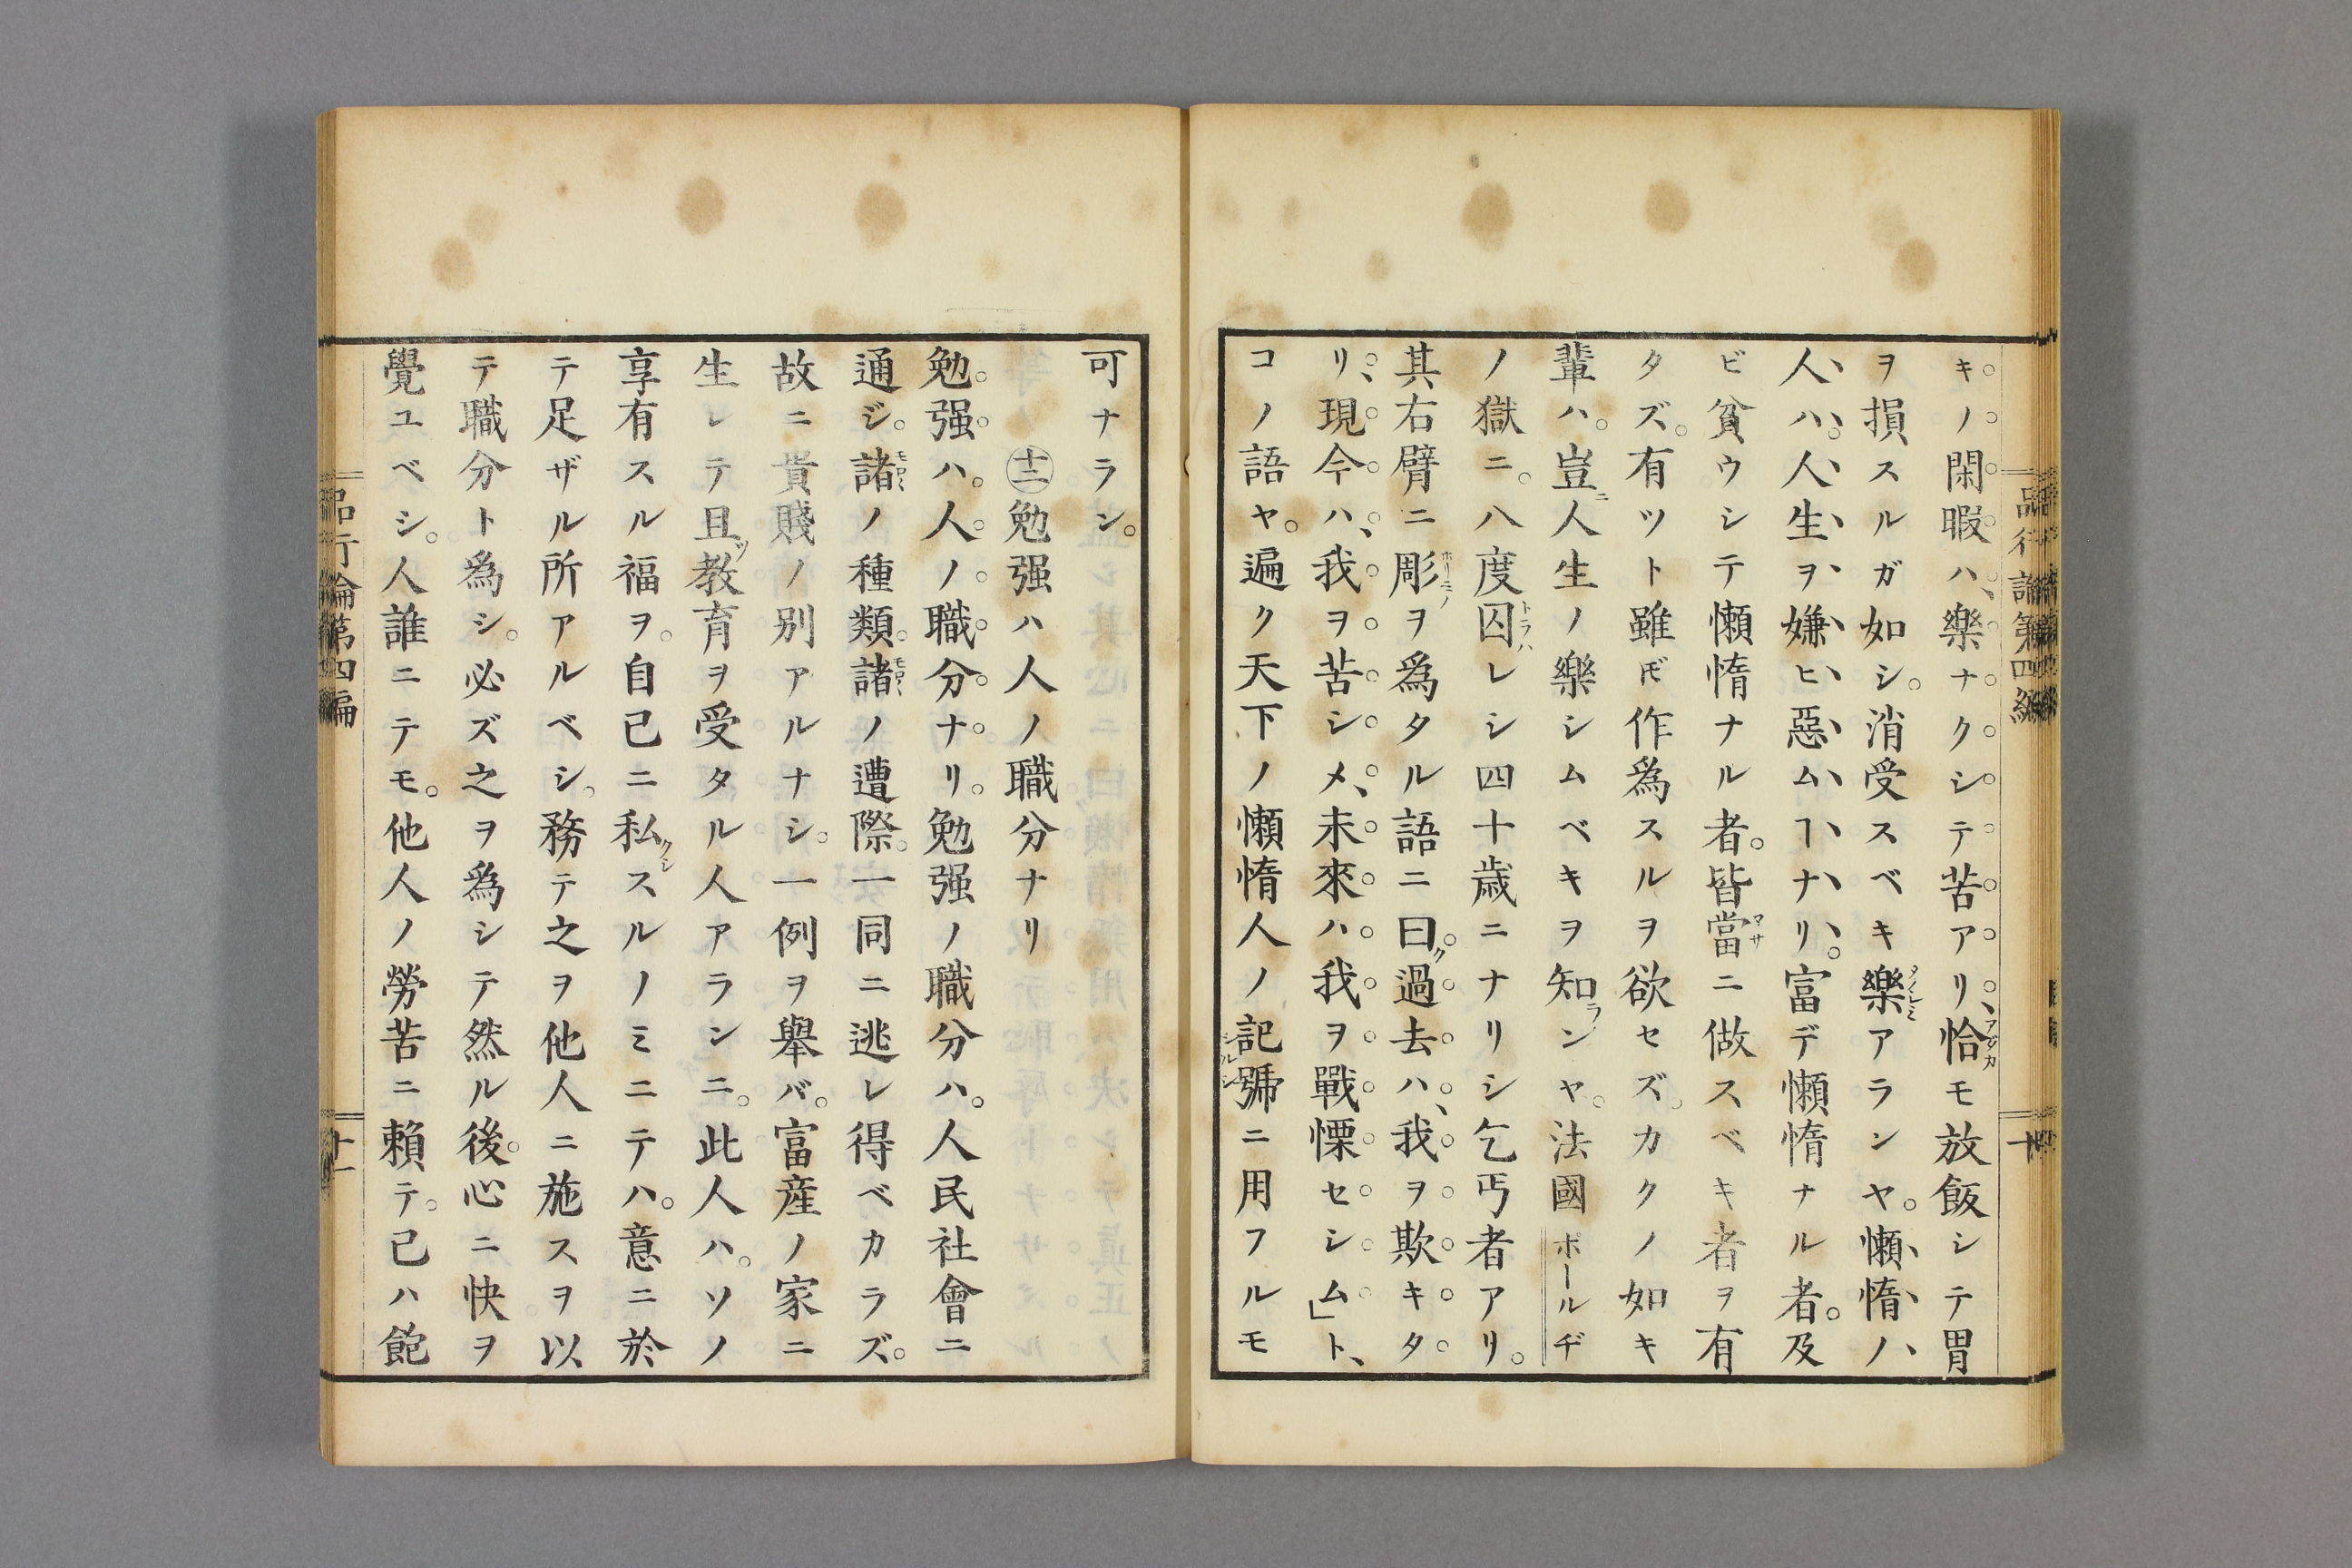 キノ閑暇ハ、樂ナクシテ苦アリ、恰モ放飯シテ胃
ヲ損スルガ如シ。消受スベキ樂アランヤ。懶惰ノ
人ハ。人生ヲ嫌ヒ惡ムヿナリ。富デ懶惰ナル者。及
ビ貧ウシテ懶惰ナル者。皆當ニ做スベキ者ヲ有
タズ。有ツト雖𪜈作爲スルヲ欲セズ。カクノ如キ
輩ハ。豈ニ人生ノ樂シムベキヲ知ランヤ。法國ボールヂ
ノ獄ニ。八度囚レシ四十歳ニナリシ乞丐者アリ。
其右臂ニ彫ヲ爲タル語ニ曰ク。過去ハ、我ヲ欺キタ
リ、現今ハ、我ヲ苦シメ、未來ハ我ヲ戰慄セシム」ト、
コノ語ヤ。遍ク天下ノ懶惰人ノ記號ニ用フルモ
品行論第四編
十
可ナラン。
㊉二勉强ハ人ノ職分ナリ
勉强ハ。人ノ職分ナリ。勉强ノ職分ハ。人民社會ニ
通ジ。諸ノ種類。諸ノ遭際。一同ニ逃レ得ベカラズ。
故ニ貴賤ノ別アルナシ。一例ヲ舉バ。富産ノ家ニ
生レテ且ツ教育ヲ受タル人アランニ。此人ハ。ソノ
享有スル福ヲ。自己ニ私クシスルノミニテハ。意ニ於
テ足ザル所アルベシ。務テ之ヲ他人ニ施スヲ以
テ職分ト為シ。必ズ之ヲ爲シテ然ル後。心ニ快ヲ
覺ユベシ。人誰ニテモ。他人ノ勞苦ニ賴テ。己ハ飽
品行論第四編
十一